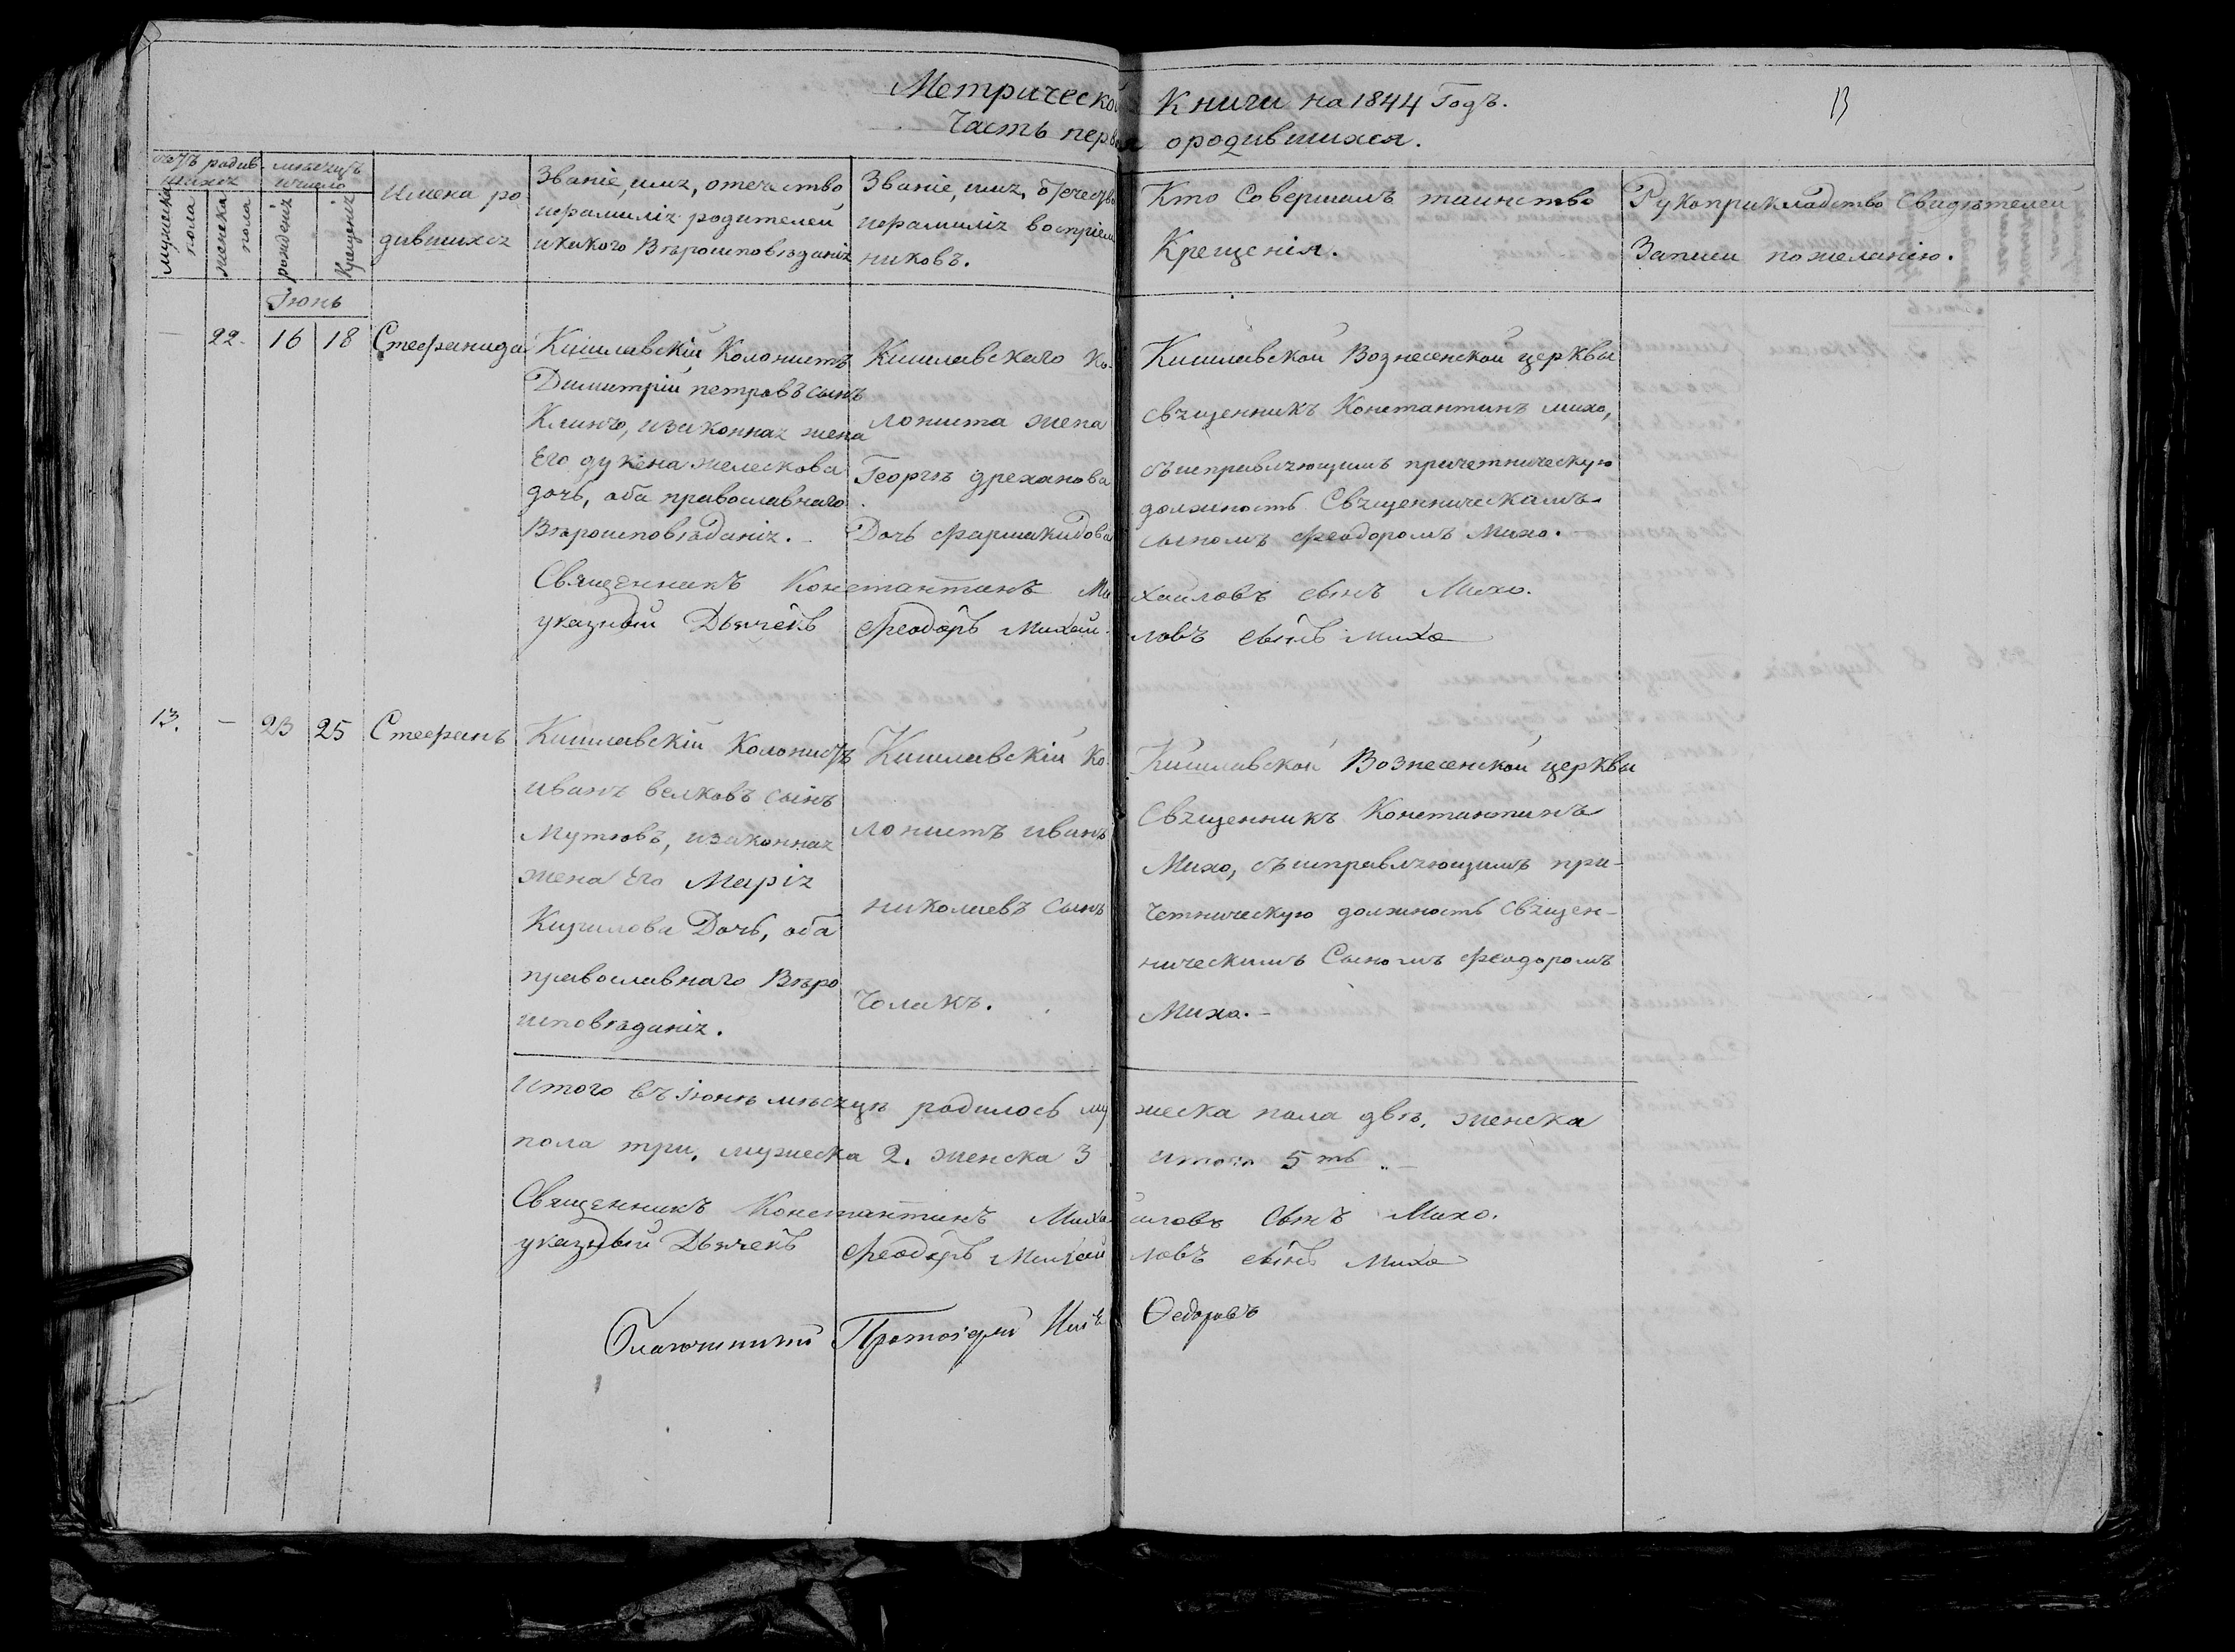 Метрической Книги на 1844 Годъ.
13
Часть первая ородившихся.
счетъ родив
шихся
мѣсяцъ
ичисло
мужеска
пола
женска
пола
рожденія
Крещенія
Имена ро
дившихся
Званіе, имя, отечество
ифамилія родителей
икакого Вѣроисповѣданія
Званіе, имя, отечество
ифамилія воспріем
никовъ.
Кто Совершалъ таинство
Крещенія.
Рукоприкладство Свидѣтелей
Записи пожеланію.
Іюнь
— 22. 16 18 Стефанида
Кишлавскій Колонистъ
Димитрій петровъ сынъ
изаконная жена
Его желескова
дочь, оба православнаго
Вѣроисповѣданія.
Кишлавскаго Ко-
лониста жена
Георгія
Дочь Фармакидова
Кишлавской Вознесенской церквы
священникъ Константинъ михо,
съисправляющимъ причетническую
должность Священническимъ
сыномъ Феодоромъ Михо.
Священникъ Константинъ Михайловъ сынъ Михо.
указный Дьячекъ Феодоръ Михайловъ сынъ михо
13. — 23 25 Стефанъ
Кишлавскій Колонистъ
иванъ велковъ сынъ
Мутовъ, изаконная
жена Его Марія
Кирилова Дочь, оба
православнаго Вѣро
исповѣданія.
Кишлавскій Ко
лонистъ иванъ
николаевъ сынъ
Чолакъ.
Кишлавской Вознесенской церквы
Священникъ Константинъ
Михо, съисправляющимъ при-
четническую должность Священ-
ническимъ Сыномъ Феодоромъ
Михо.-
Итого въ Іюнѣ мѣсяцѣ родилось мужеска пола двѣ, женска
пола три, мужеска 2. женска 3 итого 5ть
Священникъ Константинъ Михайловъ Сынъ Михо.
указный Дьячекъ Феодоръ Михайловъ сынъ Михо
Благочинный Протоіерей Ѳедоровъ